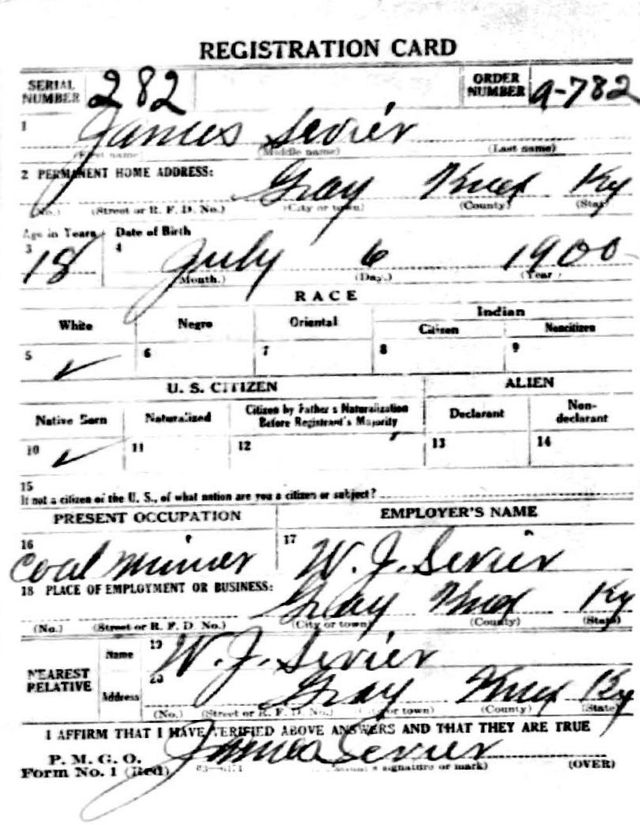 REGISTRATION CARD
SERIAL NUMBER 282 ORDER NUMBER A-782
1 James Sevier
(First name) (Middle name) (Last name)
2 PERMANENT HOME ADDRESS: Gray Knox Ky
(No.) (Street or R. F. D. No.) (City or town) (County) (State)
Age in Years Date of Birth
3 18 4 July 6 1900
(Month.) (Day.) (Year)
RACE
White Negro Oriental Indian
Citizen Noncitizen
5 ✓ 6 7 8 9
U. S. CITIZEN ALIEN
Native Born Naturalized Citizen by Father's Naturalization Before Registrant's Majority Declarant Non-declarant
10 ✓ 11 12 13 14
15
If not a citizen of the U. S., of what nation are you a citizen or subject?
PRESENT OCCUPATION EMPLOYER'S NAME
16 Coal Miner 17 W. J. Sevier
18 PLACE OF EMPLOYMENT OR BUSINESS: Gray Knox Ky
(No.) (Street or R. F. D. No.) (City or town) (County) (State)
NEAREST RELATIVE Name 19 W. J. Sevier
Address 20 Gray Knox Ky
(No.) (Street or R. F. D. No.) (City or town) (County) (State)
I AFFIRM THAT I HAVE VERIFIED ABOVE ANSWERS AND THAT THEY ARE TRUE
P. M. G. O.
Form No. 1 (Red) James Sevier
signature or mark) (OVER)